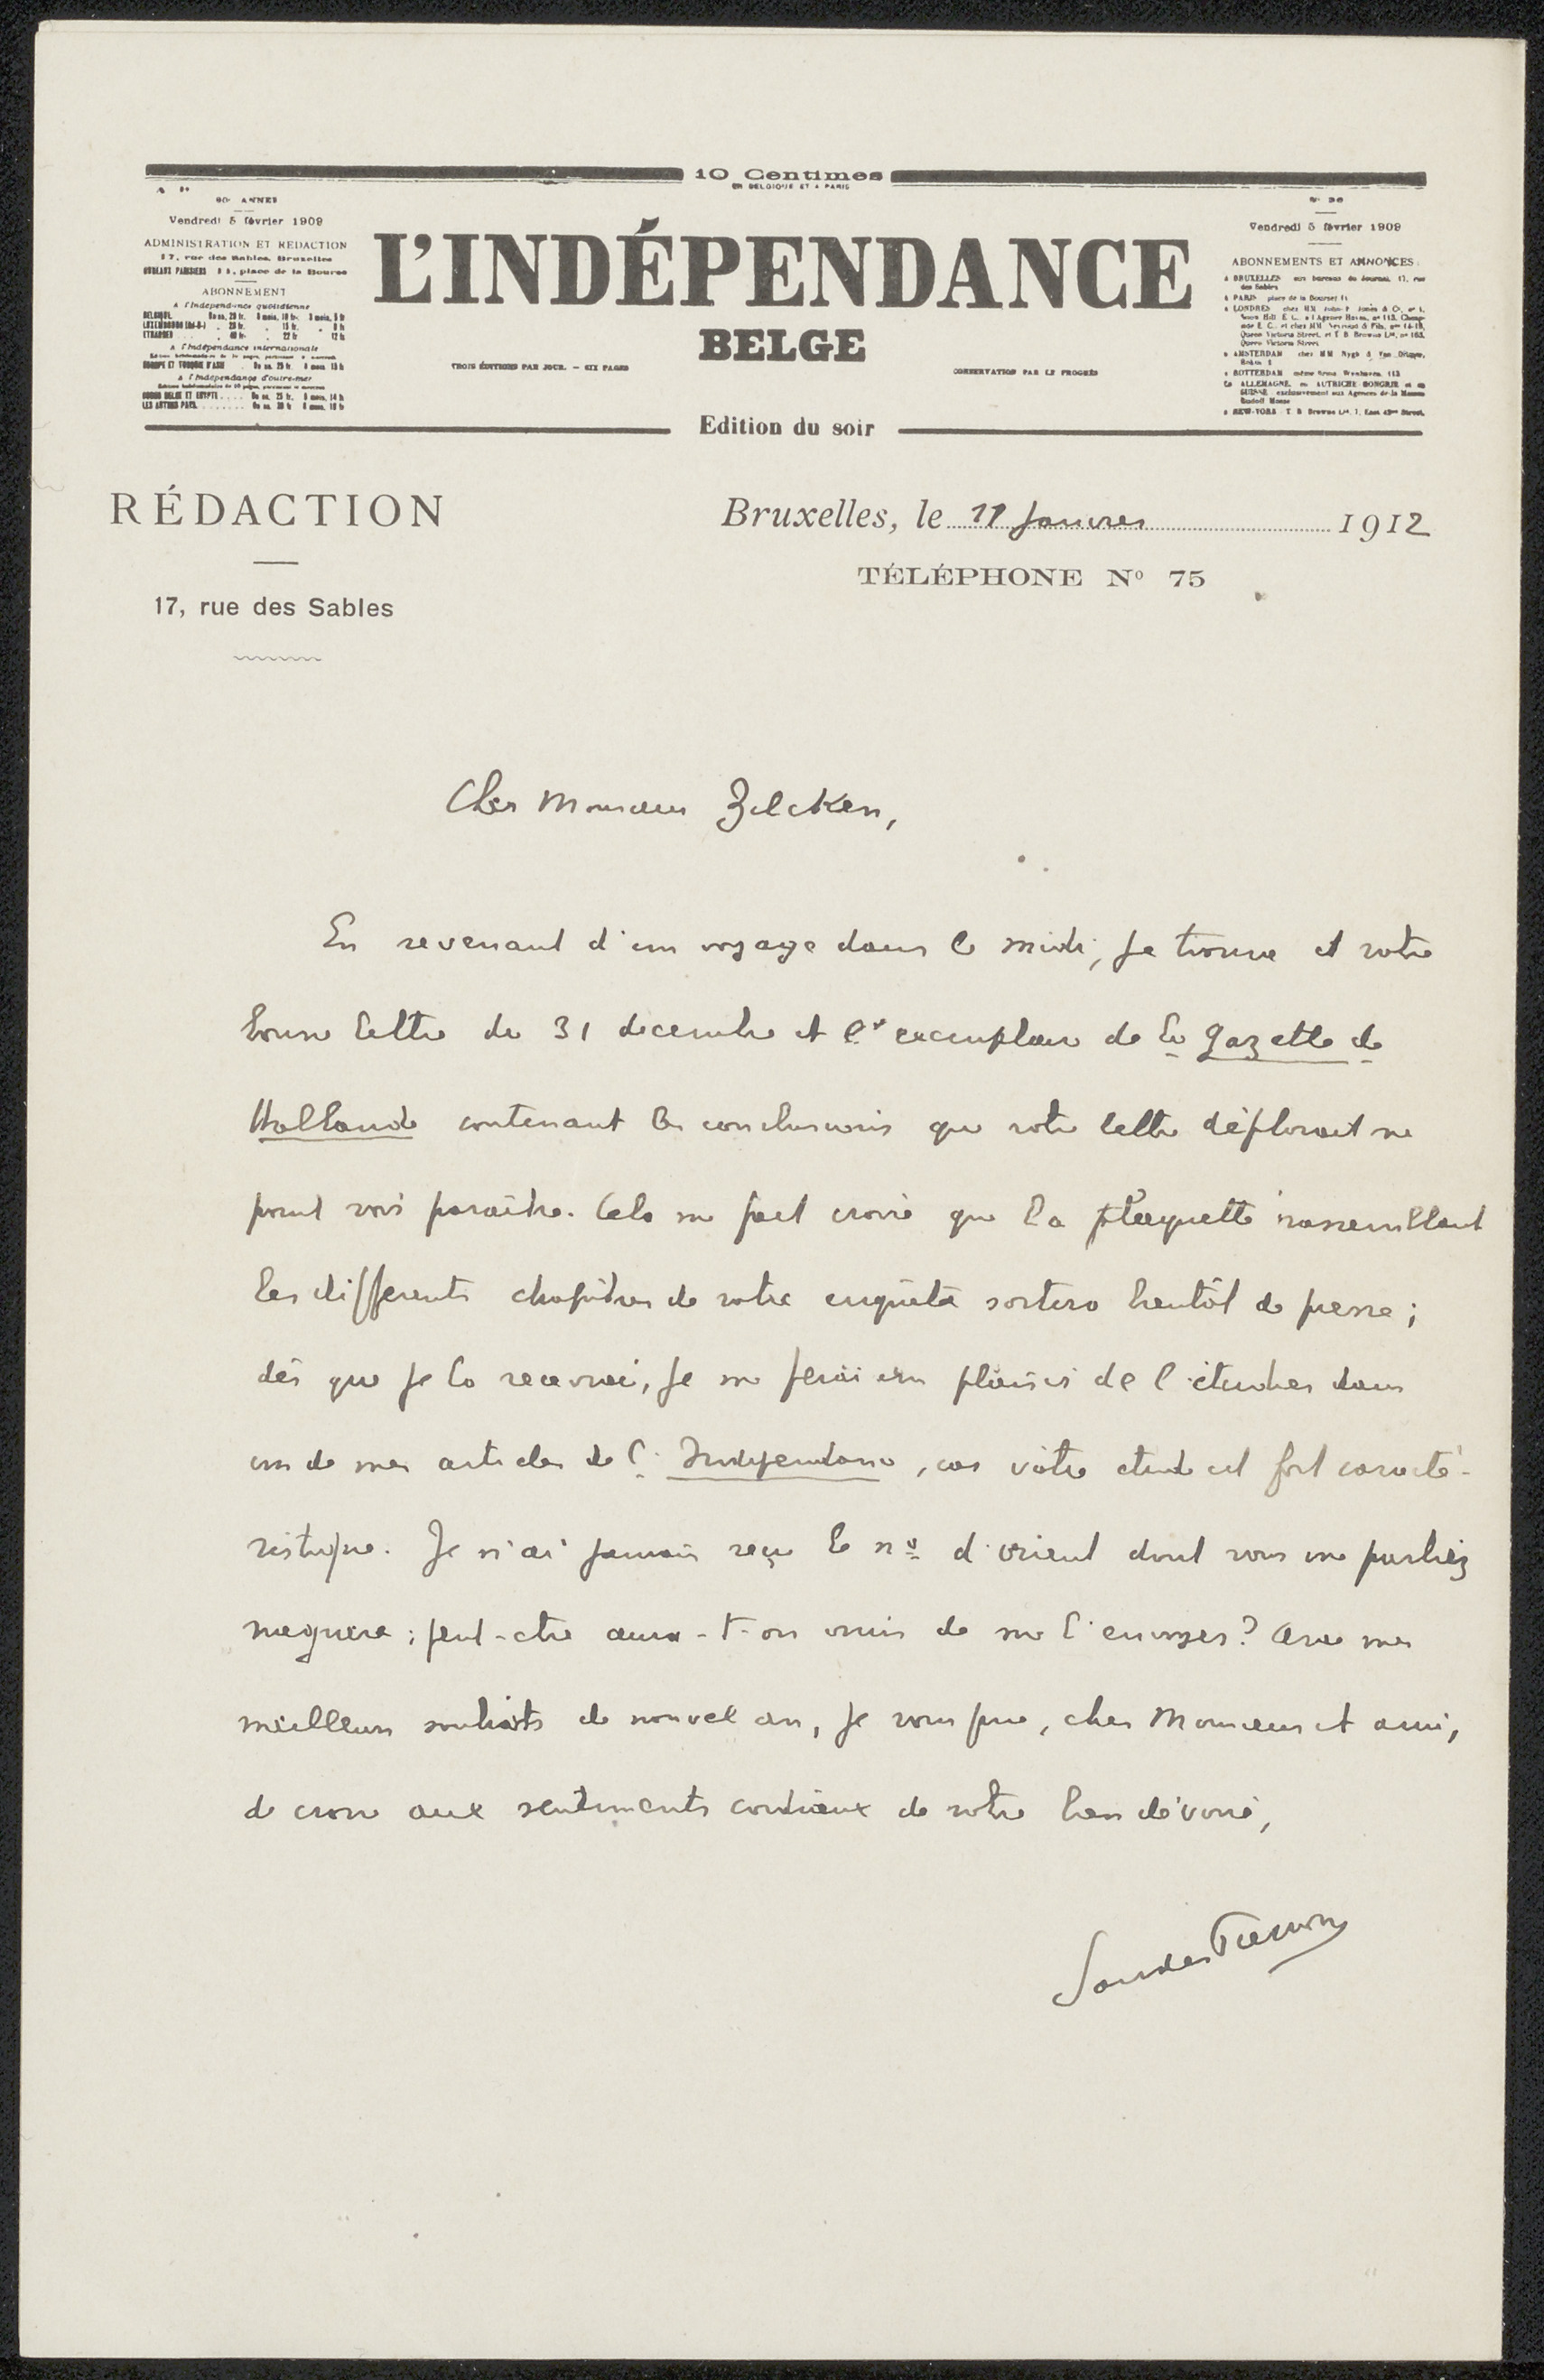 10 Centimes
EN BELGIQUE ET A PARIS
80e ANNEE
Vendredi 5 février 1909
ADMINISTRATION ET REDACTION
17, rue des Sables, Bruxelles
BUREAUX PARISIENS 11, place de la Bourse
ABONNEMENT
A l'Indépendance quotidienne
A l'Indépendance internationale
A l'Indépendance d'outre-mer
L'INDÉPENDANCE
BELGE
TROIS ÉDITIONS PAR JOUR. — SIX PAGES
CONSERVATION PAR LE PROGRÈS
Edition du soir
N° 36
Vendredi 5 février 1909
ABONNEMENTS ET ANNONCES
A BRUXELLES aux bureaux du Journal, 17, rue
des Sables
A PARIS place de la Bourse, 11
RÉDACTION
17, rue des Sables
Bruxelles, le 11 Janvier 1912
TÉLÉPHONE No 75
Cher Monsieur Zilcken,
En revenant d'un voyage dans le midi, je trouve et votre
bonne lettre du 31 décembre et l'exemplaire de la Gazette de
Hollande contenant les conclusions que votre lettre déplorait ne
point voir paraître. Cela me fait croire que la plaquette rassemblant
les différents chapitres de votre enquête sortira bientôt de presse;
dès que je la recevrai, je me ferai un plaisir de l'étudier dans
un de mes articles de l'Indépendance, car votre étude est fort caracté-
ristique. Je n'ai jamais reçu le no d'orient dont vous me parliez
naguère; peut-être aura-t-on omis de me l'envoyer? Avec mes
meilleurs souhaits de nouvel an, je vous prie, cher Monsieur et ami,
de croire aux sentiments cordiaux de votre bien dévoué,
Sander Pierron